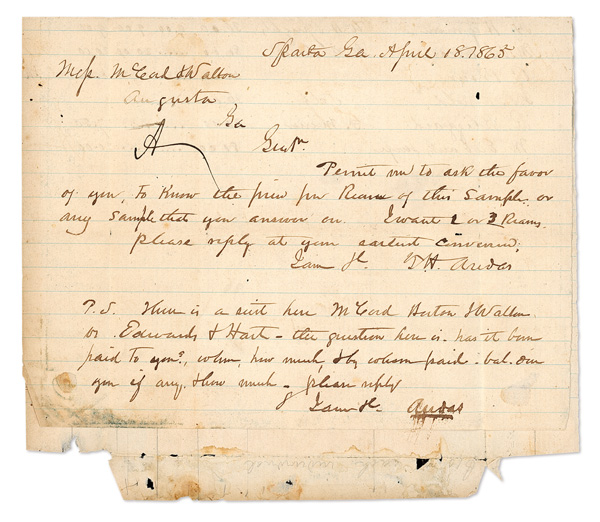 Sparta Ga. April 18. 1865
Mess. McCord & Walton
Augusta
Ga
A
Gentn.
Permit me to ask the favor
of you, to Know the price per Ream of this Sample, or
any Sample that you answer on. I want 2 or 3 Reams.
please reply at your earliest convenience;
I am &c. T H. Audas
P.S. There is a suit here McCord Horton & Walton
vs. Edwards & Hart - the question here is. has it been
paid to you?, when, how much, & by whom paid. bal. due
you if any. & how much - please reply
I am &c. Audas